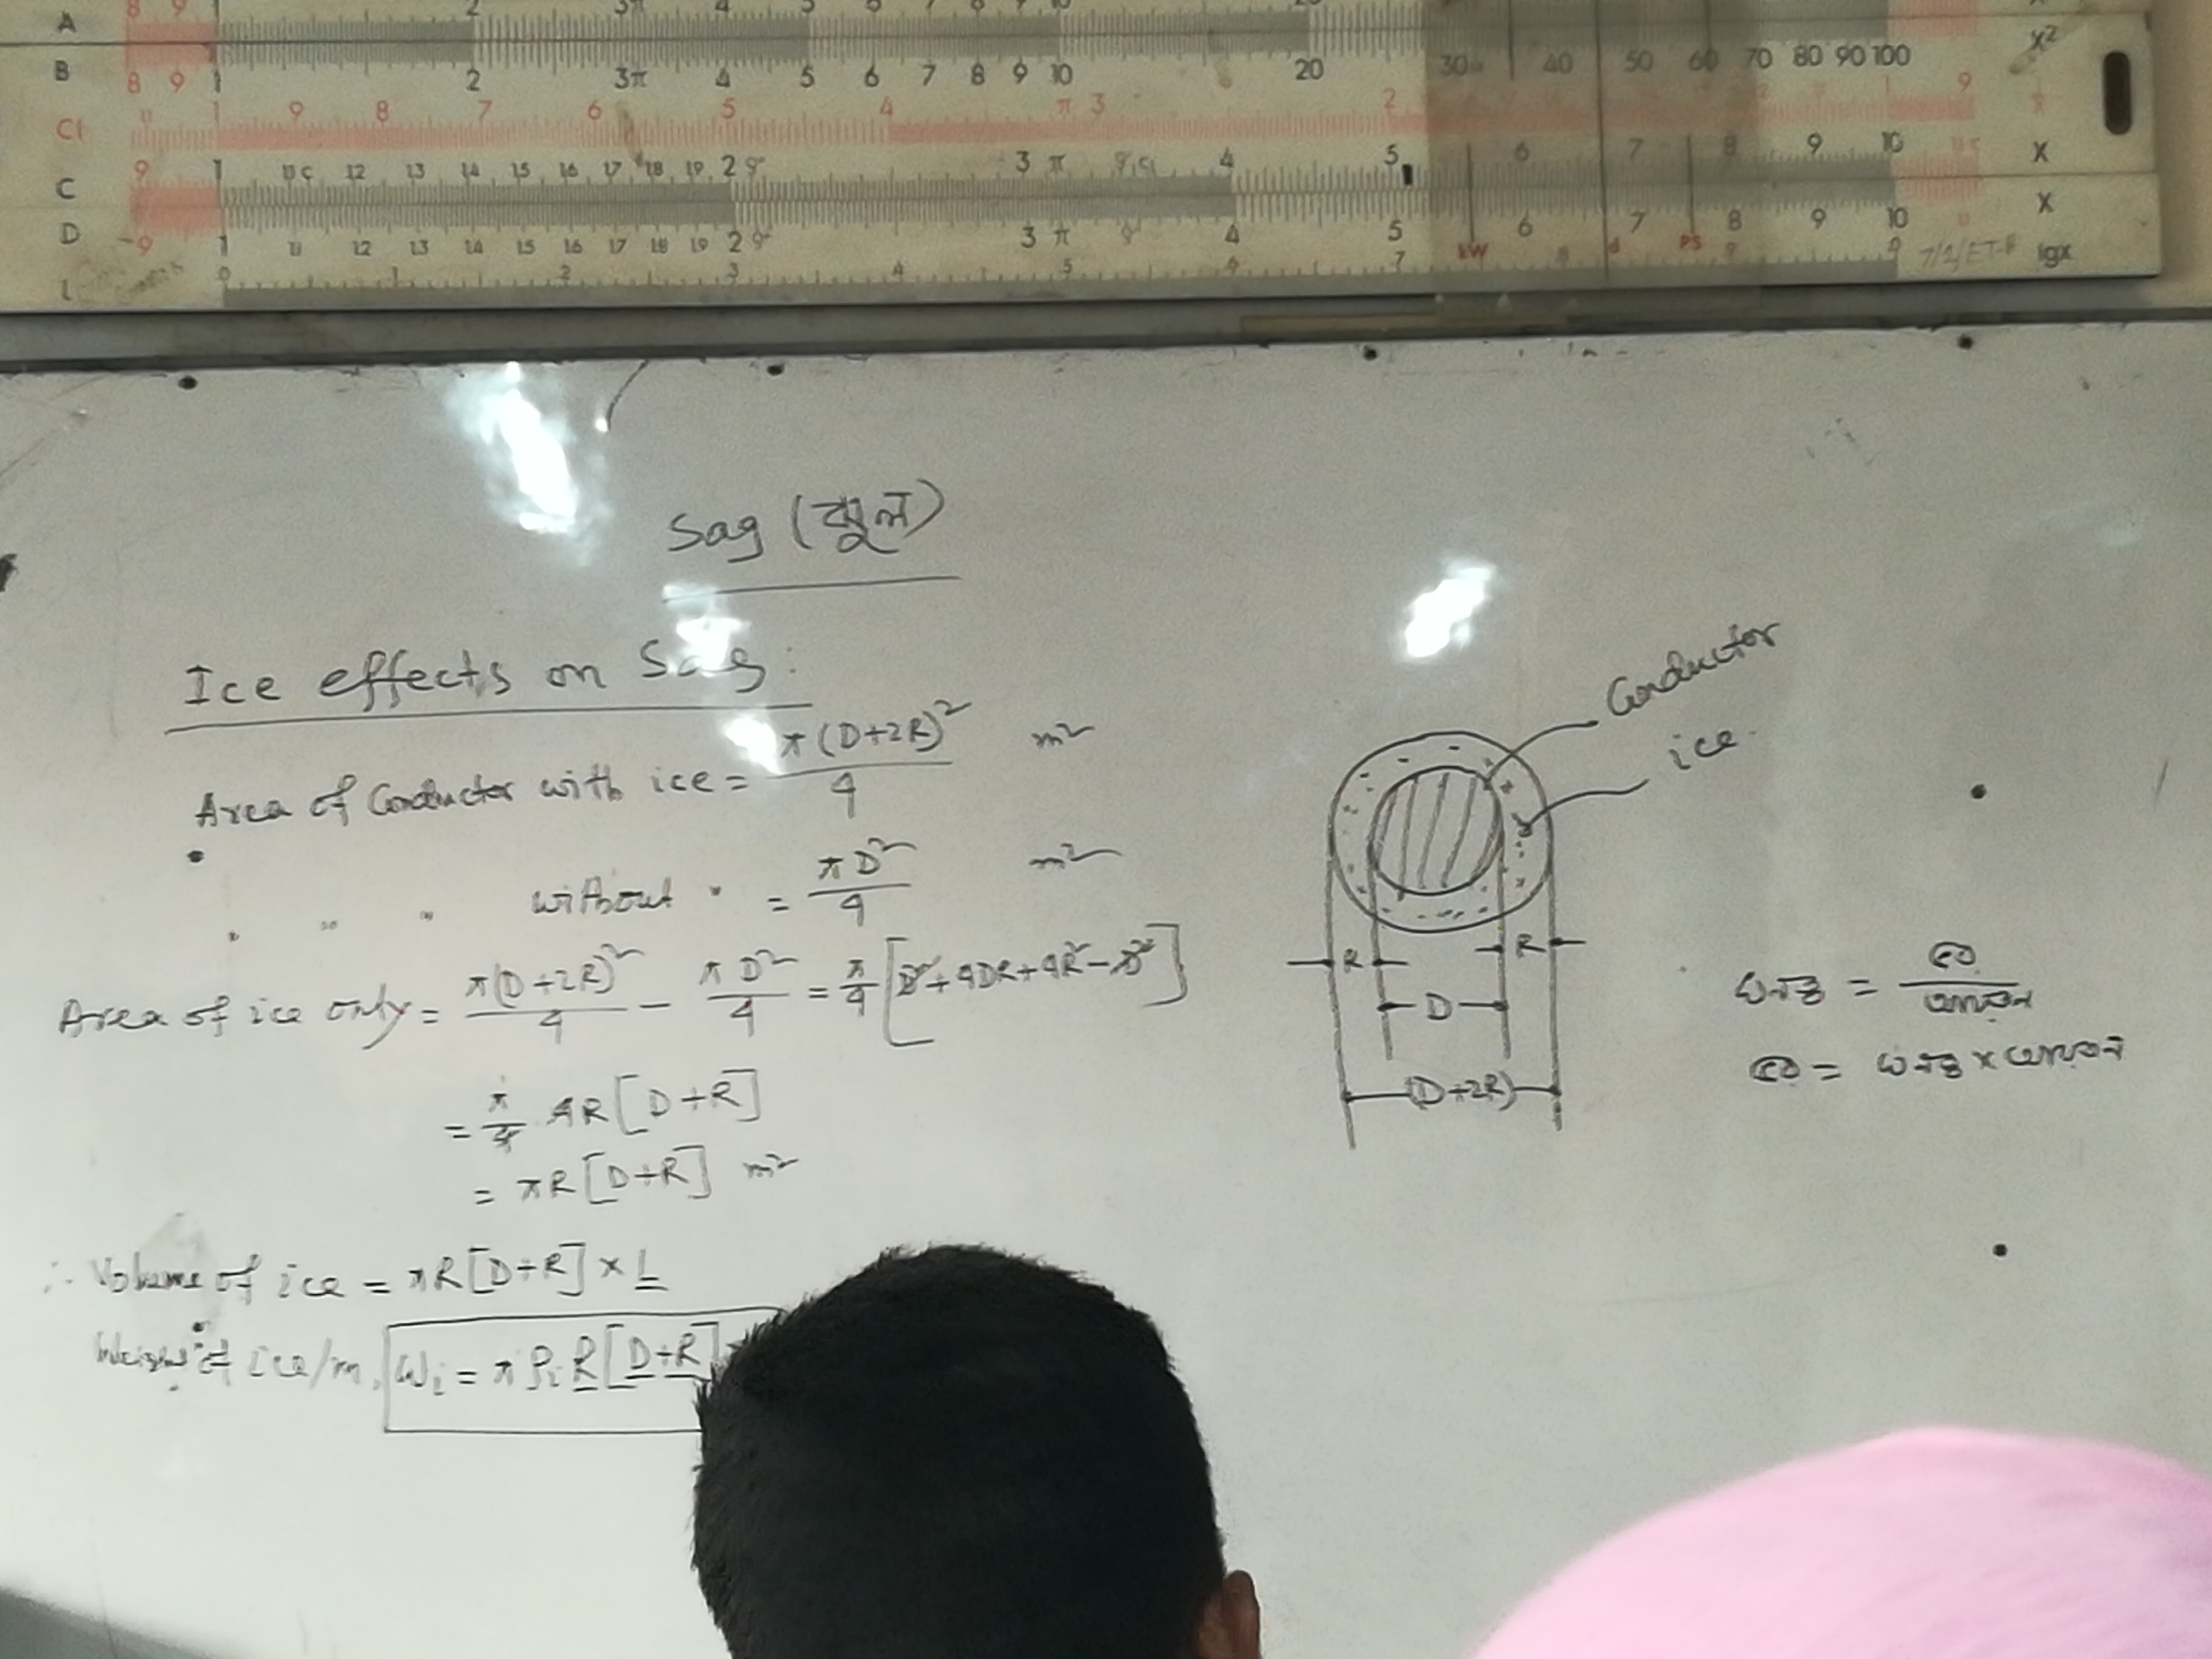 A
B 8 9 1 2 3π 4 5 6 7 8 9 10 20 30 40 50 60 70 80 90 100 x²
CI 1 9 8 7 6 5 4 π 3 2 9
C 9 1 12 13 14 15 16 17 18 19 2 3 π 4 5 6 7 8 9 10 X
D -9 1 11 12 13 14 15 16 17 18 19 2 3 π 4 5 6 7 8 9 10 X
L 0 1 2 3 4 5 6 7 kW 8 d PS 9 lgx
Sag (ঝুল)
Ice effects on Sag:
Area of Conductor with ice = π(D+2R)²/4 m²
" " " without " = πD²/4 m²
Area of ice only = π(D+2R)²/4 - πD²/4 = π/4 [D²+4DR+4R²-D²]
= π/4 4R[D+R]
= πR[D+R] m²
∴ Volume of ice = πR[D+R] × 1
Weight of ice/m, Wi = π ρi R[D+R]
Conductor
ice
R R
D
(D+2R)
ঘনত্ব = ভর/আয়তন
ভর = ঘনত্ব × আয়তন